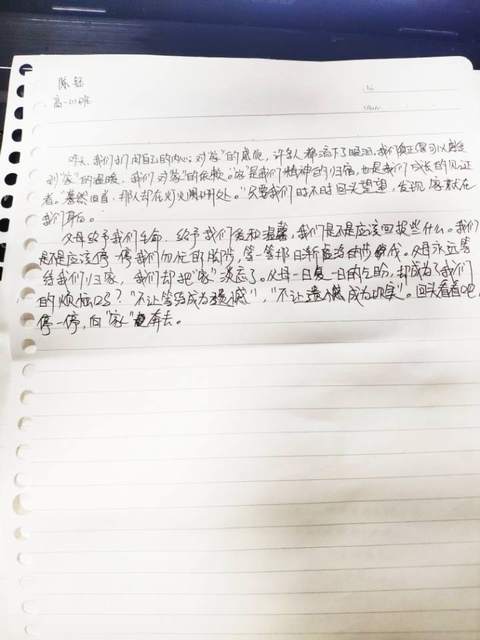 陈
高一(1)班
No.
Date
昨天,我们打开自己的内心,对"家"的感
到"家"的温暖,我们对"家"的依赖。家是我们精神的归宿,也是我们成长的见证
者。"蓦然回首,那人却在灯火阑珊处。"只要我们时不时回头望望,发现家就在
我们身后。
父母给予我们生命,给予我们爱和温馨,我们是不是应该回报些什么。我们
是不是应该停一停我们匆忙的脚步,等一等那日渐
给我们以家,我们却把"家"淡忘了。父母一日复一日的
的烦恼"不让等待成为遗憾","不让遗憾成为现实"。回头看看吧,
停一停,向"家"奔去。